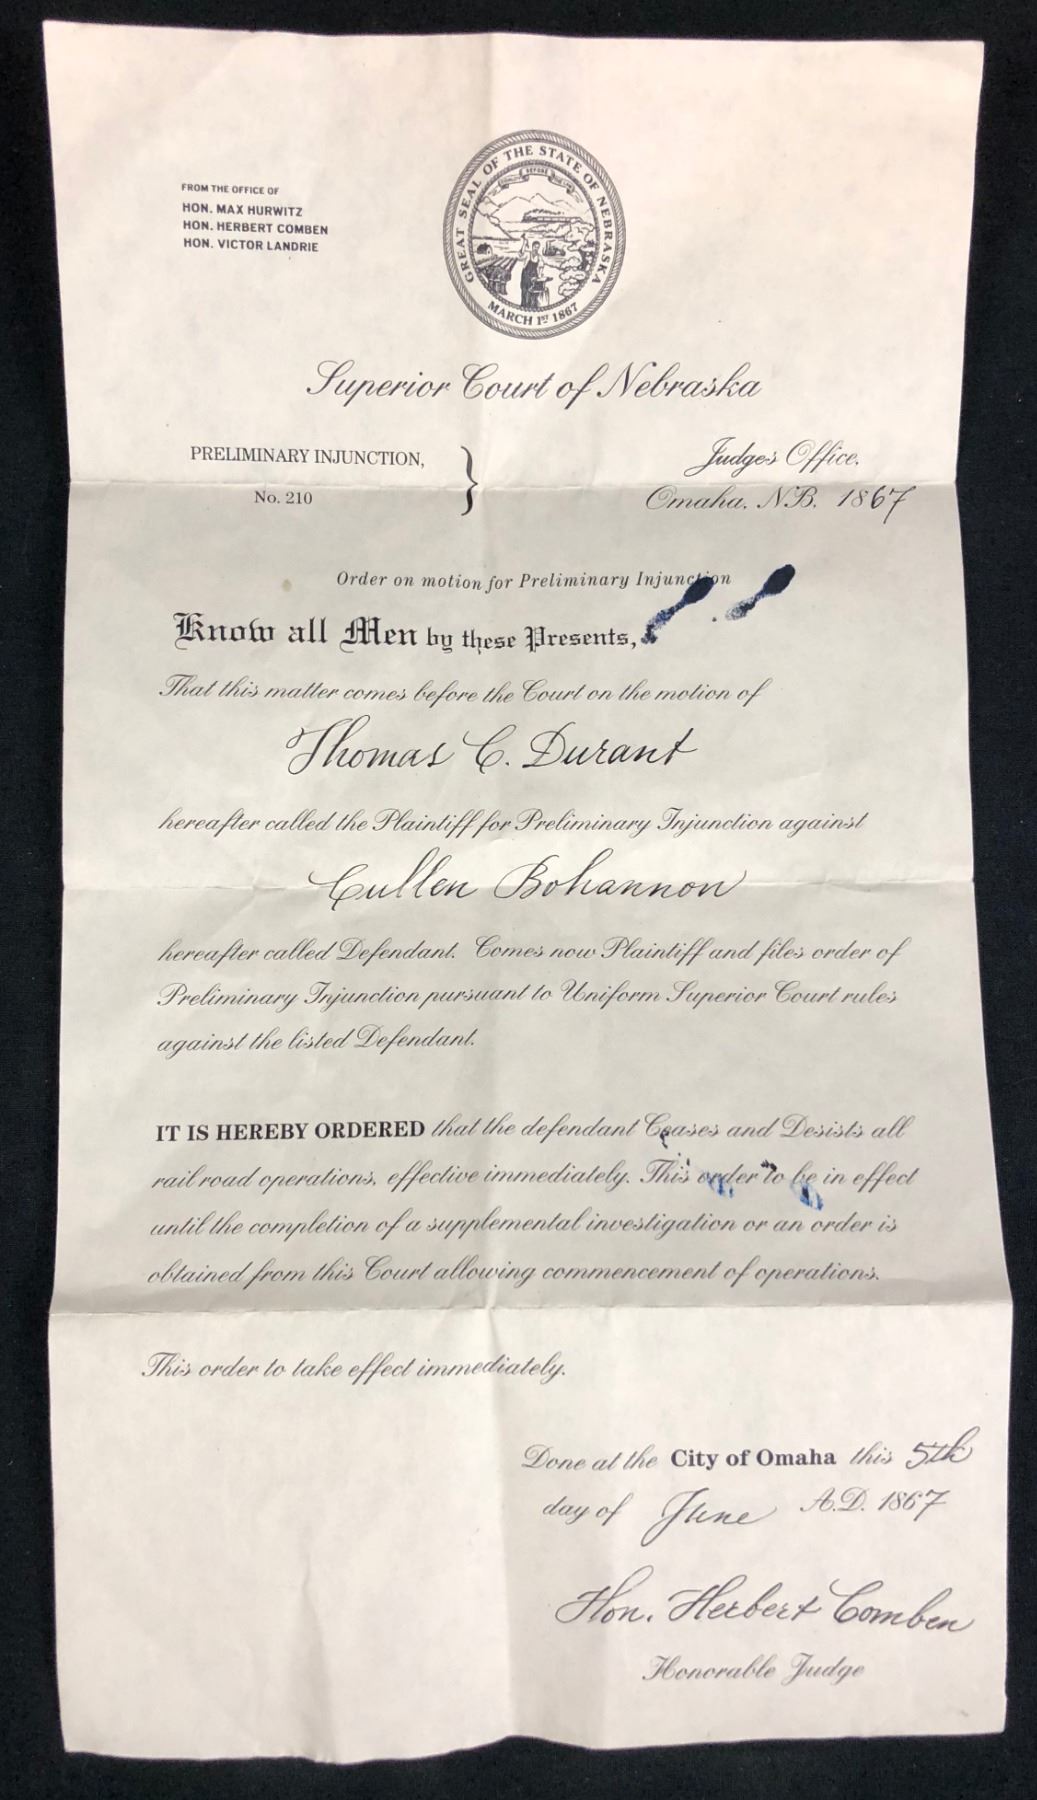 FROM THE OFFICE OF
HON. MAX HURWITZ
HON. HERBERT COMBEN
HON. VICTOR LANDRIE
GREAT SEAL OF THE STATE OF NEBRASKA
MARCH 1ST 1867
Superior Court of Nebraska
PRELIMINARY INJUNCTION,
No. 210
}
Judges Office.
Omaha, N.B. 1867
Order on motion for Preliminary Injunction
Know all Men by these Presents,
That this matter comes before the Court on the motion of
Thomas C. Durant
hereafter called the Plaintiff for Preliminary Injunction against
Cullen Bohannon
hereafter called Defendant. Comes now Plaintiff and files order of
Preliminary Injunction pursuant to Uniform Superior Court rules
against the listed Defendant.
IT IS HEREBY ORDERED that the defendant Ceases and Desists all
rail road operations, effective immediately. This order to be in effect
until the completion of a supplemental investigation or an order is
obtained from this Court allowing commencement of operations.
This order to take effect immediately.
Done at the City of Omaha this 5th
day of June A.D. 1867
Hon. Herbert Comben
Honorable Judge